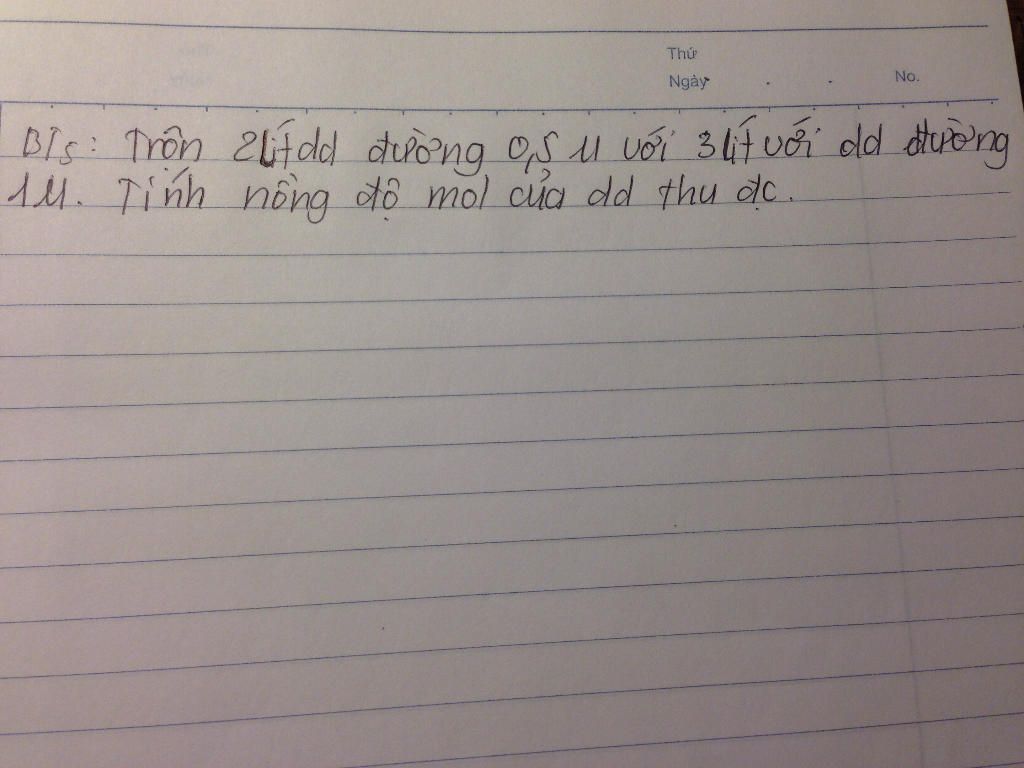 Thứ
Ngày . . No.
BT5: Trộn 2lít dd đường 0,5 M với 3lít với dd đường
1M. Tính nồng độ mol của dd thu đc.